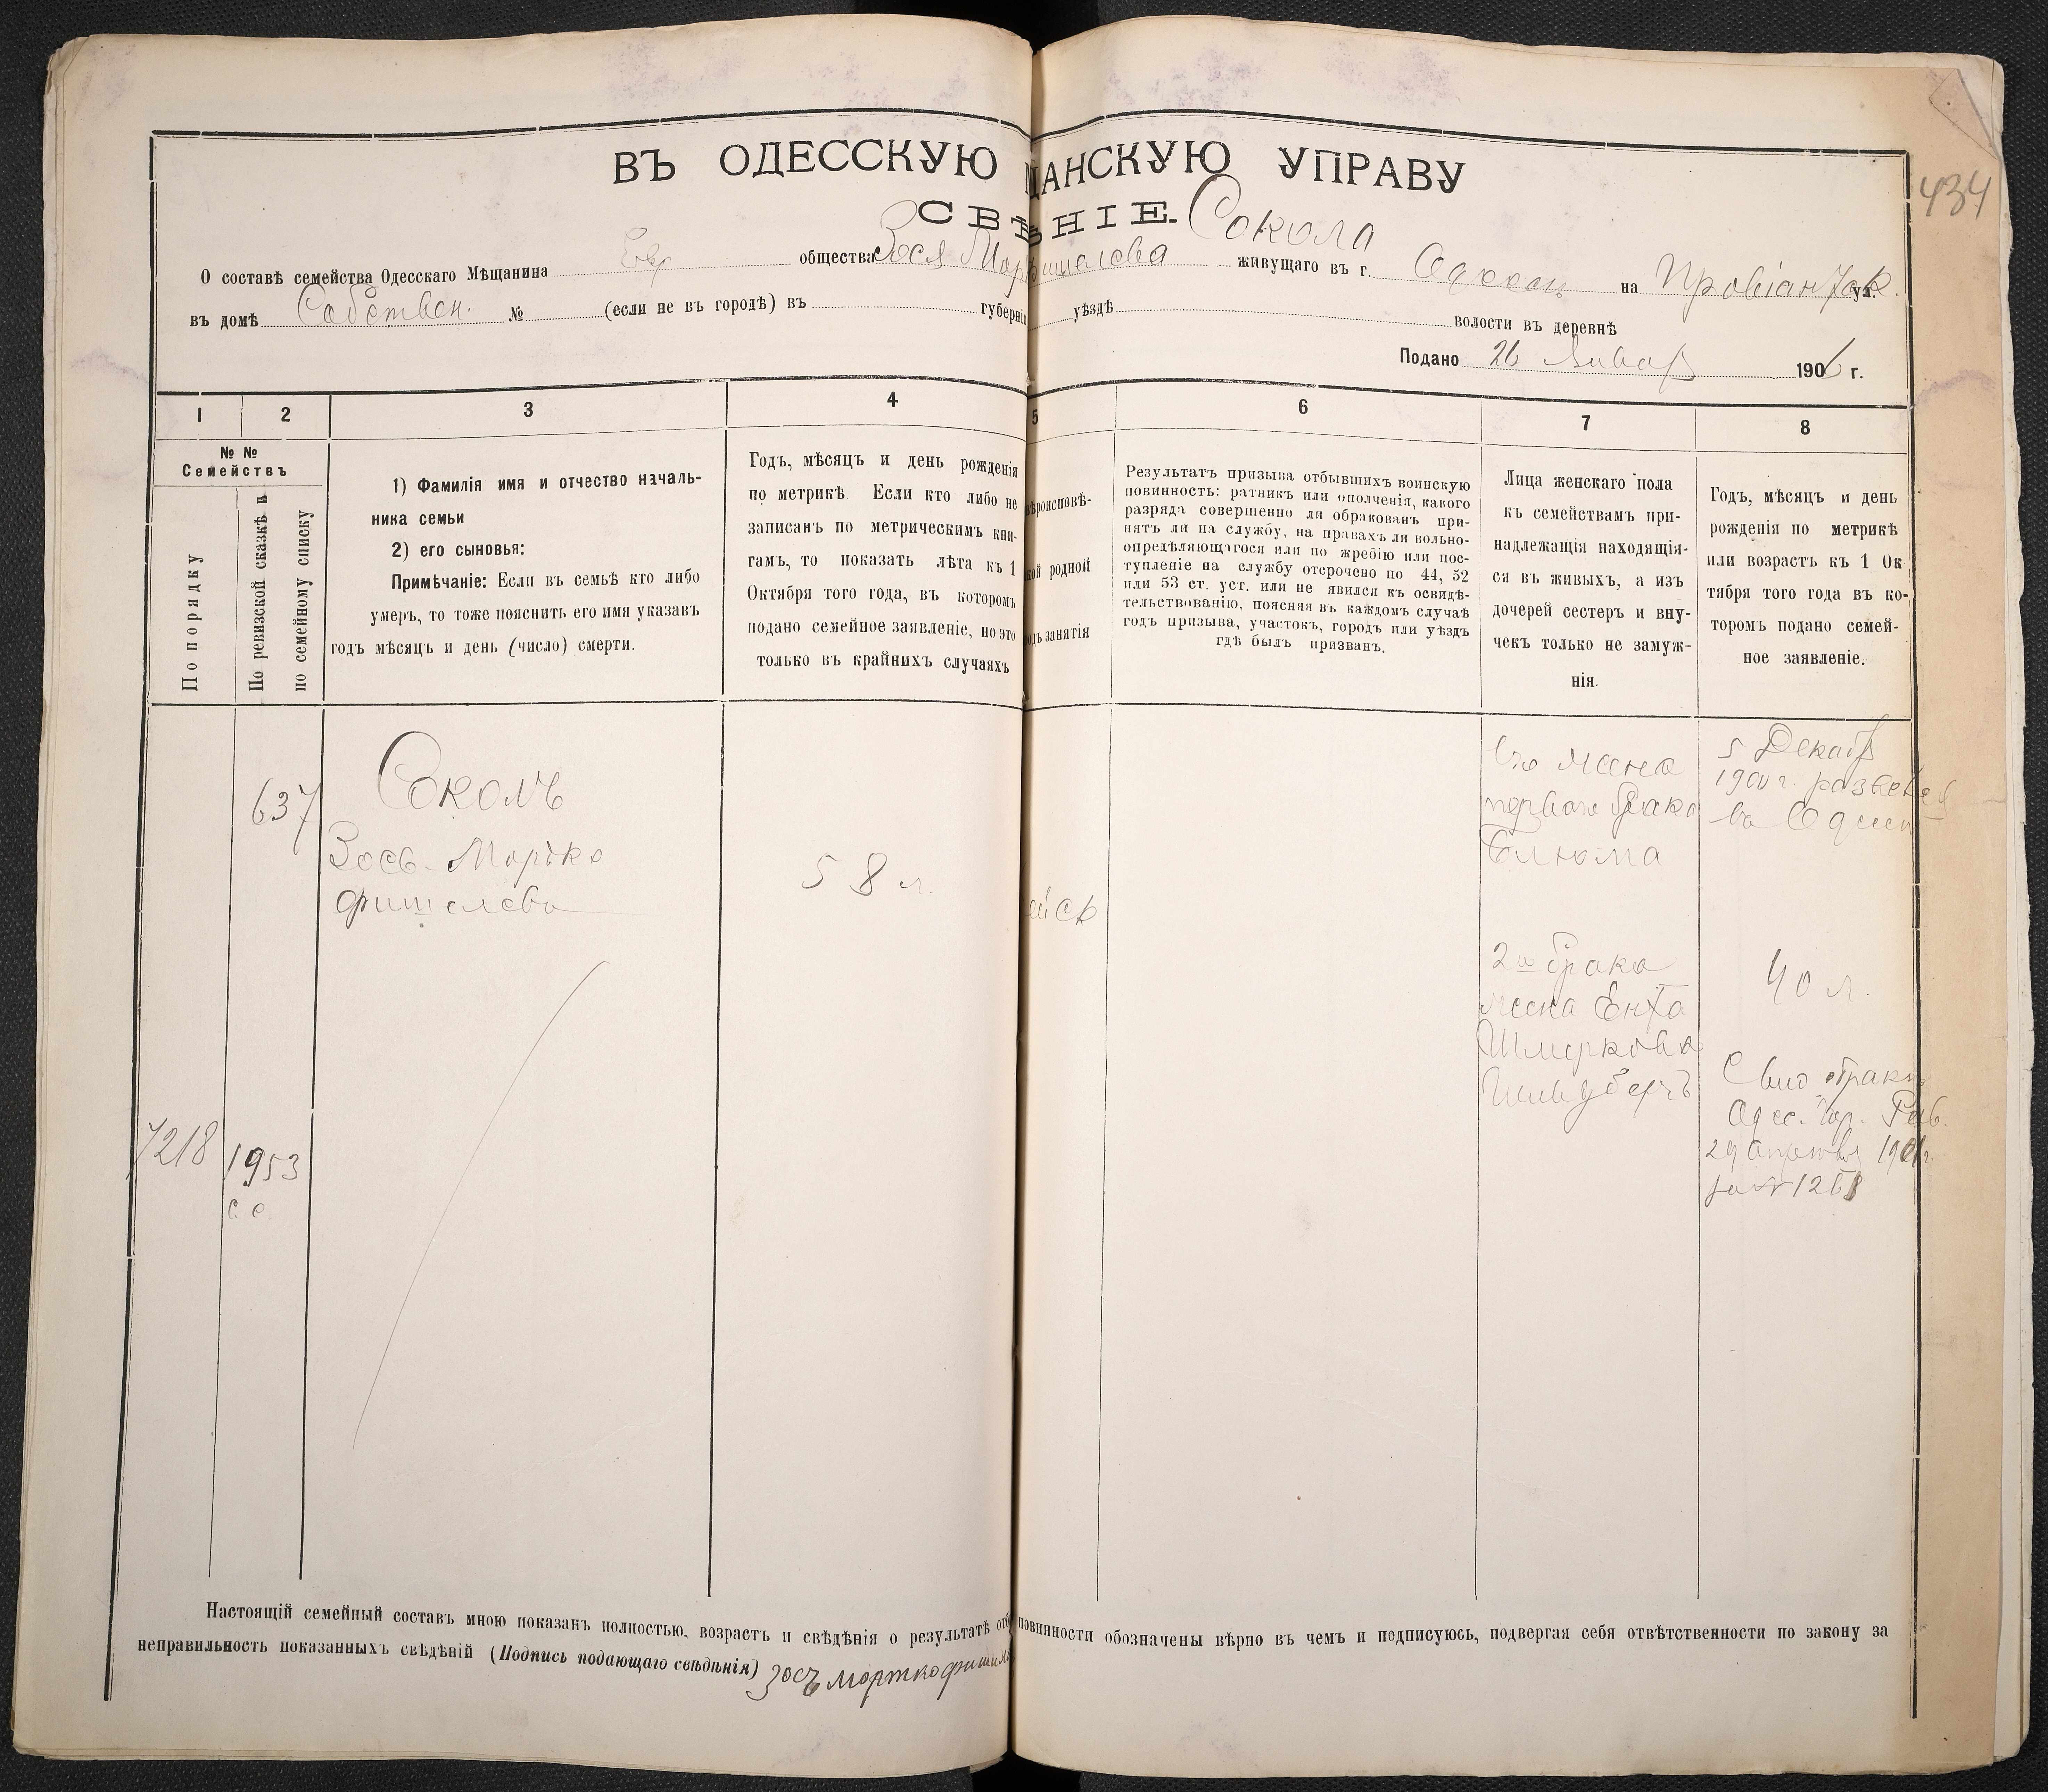 ВЪ ОДЕССКУЮ ЩАНСКУЮ УПРАВУ
434
СВѢ НІЕ. Сокола
О составѣ семейства Одесскаго Мѣщанина Евр общества Зося Мор шелева живущаго въ г. Одессѣ на Провіантск ул.
въ домѣ Собствен. № (если не въ городѣ) въ губерніи уѣздѣ волости въ деревнѣ
Подано 26 Январ 1906 г.
1 2 3 4 5 6 7 8
№ №
Семействъ
По порядку
По ревизской сказкѣ и
по семейному списку
1) Фамилія имя и отчество началь-
ника семьи
2) его сыновья:
Примѣчаніе: Если въ семьѣ кто либо
умеръ, то тоже пояснить его имя указавъ
годъ мѣсяцъ и день (число) смерти.
Годъ, мѣсяцъ и день рожденія
по метрикѣ. Если кто либо не
записанъ по метрическимъ кни-
гамъ, то показать лѣта къ 1
Октября того года, въ которомъ
подано семейное заявленіе, но это
только въ крайнихъ случаяхъ
ѣроисповѣ-
кой родной
одъ занятія
Результатъ призыва отбывшихъ воинскую
повинность: ратникъ или ополченія, какого
разряда совершенно ли обракованъ при-
нятъ ли на службу, на правахъ ли вольно-
опредѣляющагося или по жребію или пос-
тупленіе на службу отсрочено по 44, 52
или 53 ст. уст. или не явился къ освидѣ-
тельствованію, поясняя въ каждомъ случаѣ
годъ призыва, участокъ, городъ или уѣздъ
гдѣ былъ призванъ.
Лица женскаго пола
къ семействамъ при-
надлежащія находящія-
ся въ живыхъ, а изъ
дочерей сестеръ и вну-
чекъ только не замуж-
нія.
Годъ, мѣсяцъ и день
рожденія по метрикѣ
или возрастъ къ 1 Ок
тября того года въ ко-
торомъ подано семей-
ное заявленіе.
637
Соколъ
Зось-Мортко
Фишелевъ
58 л.
ейск
Его жена
перваго брака
Блюма
5 Декабр
1900 г. разведен
въ Одессѣ
2го брака
жена Ента
Шмеркова
40 л.
Свид о брак
Одес. Гор. Рав.
29 Апрѣля 1901 г.
за №
7218
1953
с. с.
Настоящій семейный составъ мною показанъ полностью, возрастъ и свѣдѣнія о результатѣ отб повинности обозначены вѣрно въ чемъ и подписуюсь, подвергая себя отвѣтственности по закону за
неправильность показанныхъ свѣдѣній (Подпись подающаго свѣдѣнія) Зось Мортко Фишил